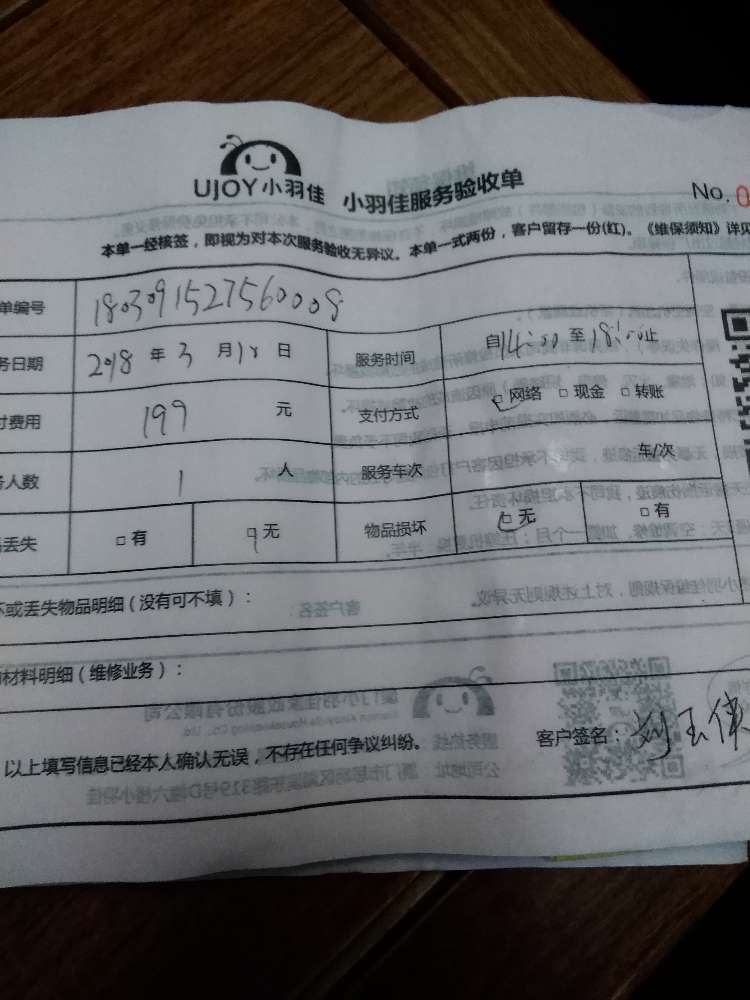 UJOY小羽佳 小羽佳服务验收单 No.0
本单一经核签，即视为对本次服务验收无异议。本单一式两份，客户留存一份(红)。《维保须知》详见
单编号 1803091527560008
务日期 2018 年 3 月 10 日 服务时间 自14:00至18:00止
付费用 199 元 支付方式 □网络 □现金 □转账
务人数 1 人 服务车次 车/次
丢失 □有 □无 物品损坏 □无 □有
坏或丢失物品明细（没有可不填）：
材料明细（维修业务）：
以上填写信息已经本人确认无误，不存在任何争议纠纷。 客户签名：刘玉伟